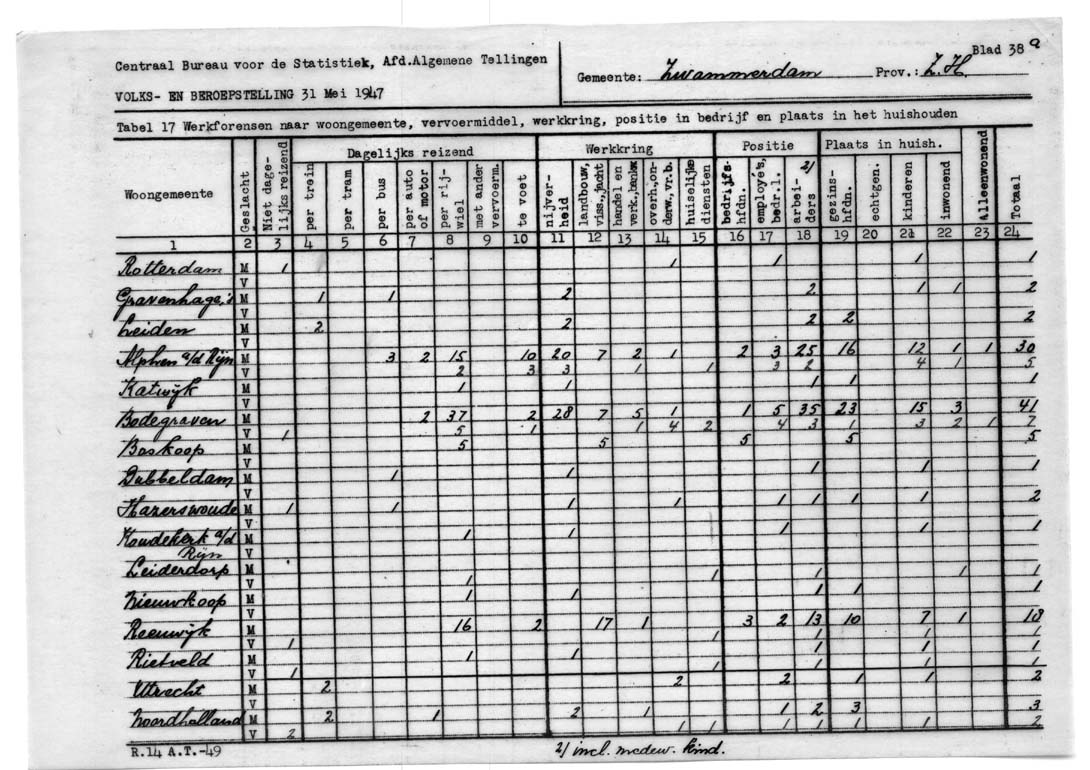 Blad 38 a
Centraal Bureau voor de Statistiek, Afd.Algemene Tellingen
Gemeente: Zwammerdam Prov.: Z.H.
VOLKS- EN BEROEPSTELLING 31 Mei 1947
Tabel 17 Werkforensen naar woongemeente, vervoermiddel, werkkring, positie in bedrijf en plaats in het huishouden
Woongemeente | Geslacht | Niet dagelijks reizend | Dagelijks reizend | Werkkring | Positie | Plaats in huish. | Alleenwonend | Totaal
per trein | per tram | per bus | per auto of motor | per rij-wiel | met ander vervoerm. | te voet | nijver-heid | landbouw, viss.,jacht | handel en verk.,bankw | overh.,on-derw.,vr.b. | huiselijke diensten | bedrijfs-hfdn. | employé's, bedr.l. | arbei-ders 2/ | gezins-hfdn. | echtgen. | kinderen | inwonend
1 2 3 4 5 6 7 8 9 10 11 12 13 14 15 16 17 18 19 20 21 22 23 24
Rotterdam M 1 1 1 1 1
V
Gravenhage,'s M 1 1 2 2 1 1 2
V
Leiden M 2 2 2 2 2
V
Alphen a/d Rijn M 3 2 15 10 20 7 2 1 2 3 25 16 12 1 1 30
V 2 3 3 1 1 3 2 4 1 5
Katwijk M 1 1 1 1 1
V
Bodegraven M 2 37 2 28 7 5 1 1 5 35 23 15 3 41
V 1 5 1 1 4 2 4 3 1 3 2 1 7
Boskoop M 5 5 5 5 5
V
Dubbeldam M 1 1 1 1 1
V
Hazerswoude M 1 1 1 1 1 1 1 1 2
V
Koudekerk a/d M 1 1 1 1 1
Rijn V
Leiderdorp M
V 1 1 1 1 1
Nieuwkoop M 1 1 1 1 1
V
Reeuwijk M 16 2 17 1 3 2 13 10 7 1 18
V 1 1 1 1 1
Rietveld M 1 1 1 1 1
V 1 1 1 1 1
Utrecht M 2 2 2 1 1 2
V
Noordholland M 2 1 2 1 1 2 3 3
V 2 1 1 1 1 1 1 2
R.14 A.T.-49
2/ incl. medew. kind.